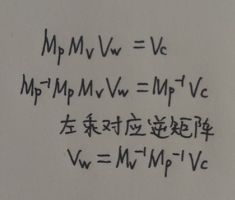 MpMvVw=Vc
Mp⁻¹MpMvVw=Mp⁻¹Vc
左乘对应逆矩阵
Vw=Mv⁻¹Mp⁻¹Vc